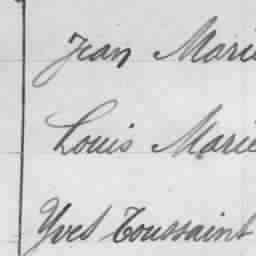 Jean Marie
Louis Marie
Yves Toussaint